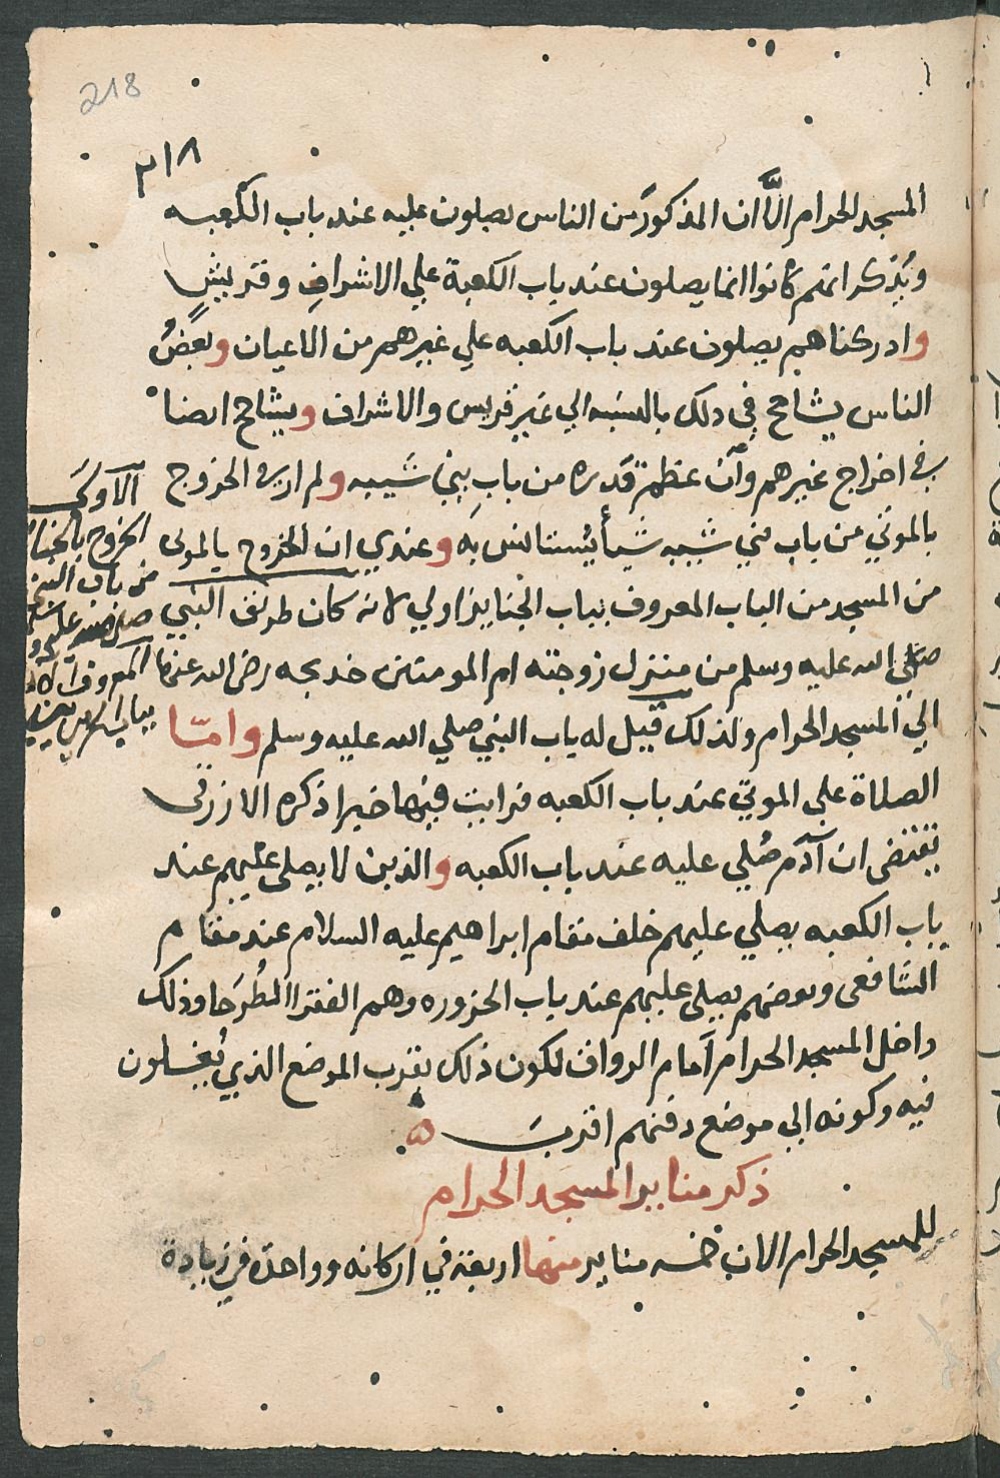 218
٢١٨
المسجد الحرام الا ان المذكور من الناس يصلون عليه عند باب الكعبه
ويذكر انهم كانوا انما يصلون عند باب الكعبة علي الاشراف وقريش
وادركناهم يصلون عند باب الكعبه علي غيرهم من الاعيان وبعض
الناس يشاحح في دلك بالنسبه الي غير قريس والاشراف ويشاحح ايضا
في اخراج غيرهم وان عظم قدره من باب بني شيبه ولم ار في الخروج
بالموتي من باب بني شيبه شيأ يستانس به وعندي ان الخروج بالموتى
من المسجد من الباب المعروف بباب الجنايز اولي لانه كان طريق النبي
صلى الله عليه وسلم من منزل زوجته ام المومنين خديجه رضي الله عنها
الي المسجد الحرام ولذلك قيل له باب النبي صلي الله عليه وسلم واما
الصلاة علي الموتي عند باب الكعبه فرايت فيها خبرا ذكره الازرقى
يقتضى ان آدم صُلي عليه عند باب الكعبه والذين لا يصلى عليهم عند
باب الكعبه يصلي عليهم خلف مقام ابراهيم عليه السلام عند مقام
الشافعى وبعضهم يصلى عليهم عند باب الحزوره وهم الفقرا الطُرَحا وذلك
داخل المسجد الحرام امام الرواق لكون ذلك بقرب الموضع الذي يُغسلون
فيه وكونه الي موضع دفنهم اقرب ه
ذكر منابر المسجد الحرام
للمسجد الحرام الان خمسه منابر منها اربعة في اركانه وواحدة في زيادة
الاولى
الخروج بالجنايز
من باب النبي
صلى الله عليه و
المعروف الان
بباب